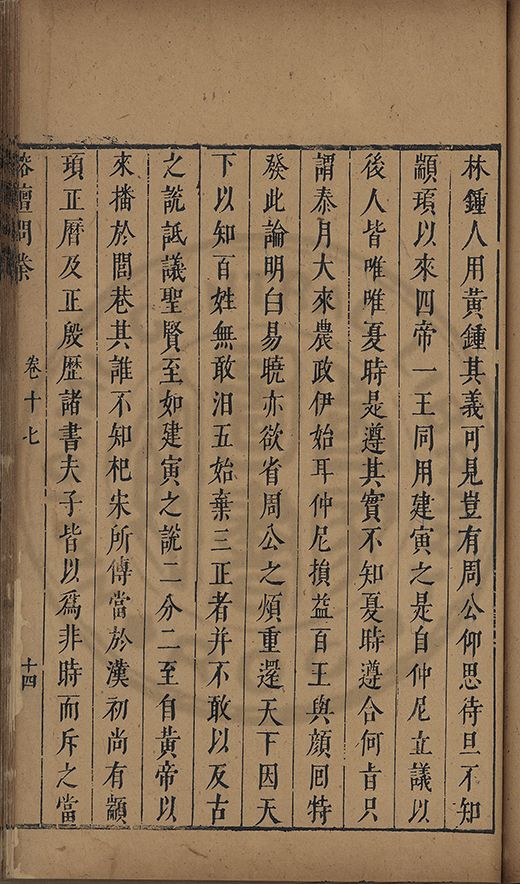 林鍾人用黃鍾其義可見豈有周公仰思待旦不知
顓頊以來四帝一王同用建寅之是自仲尼立議以
後人皆唯唯夏時是遵其實不知夏時遵合何旨只
謂泰月大來農政伊始耳仲尼損益百王與顏回特
發此論明白易曉亦欲省周公之煩重還天下因天
下以知百姓無敢汨五始棄三正者并不敢以反古
之說詆議聖賢至如建寅之說二分二至自黃帝以
來播於閭巷其誰不知杞宋所傳當於漢初尚有顓
頊正曆及正殷歷諸書夫子皆以爲非時而斥之當
榕壇問業
卷十七
十四